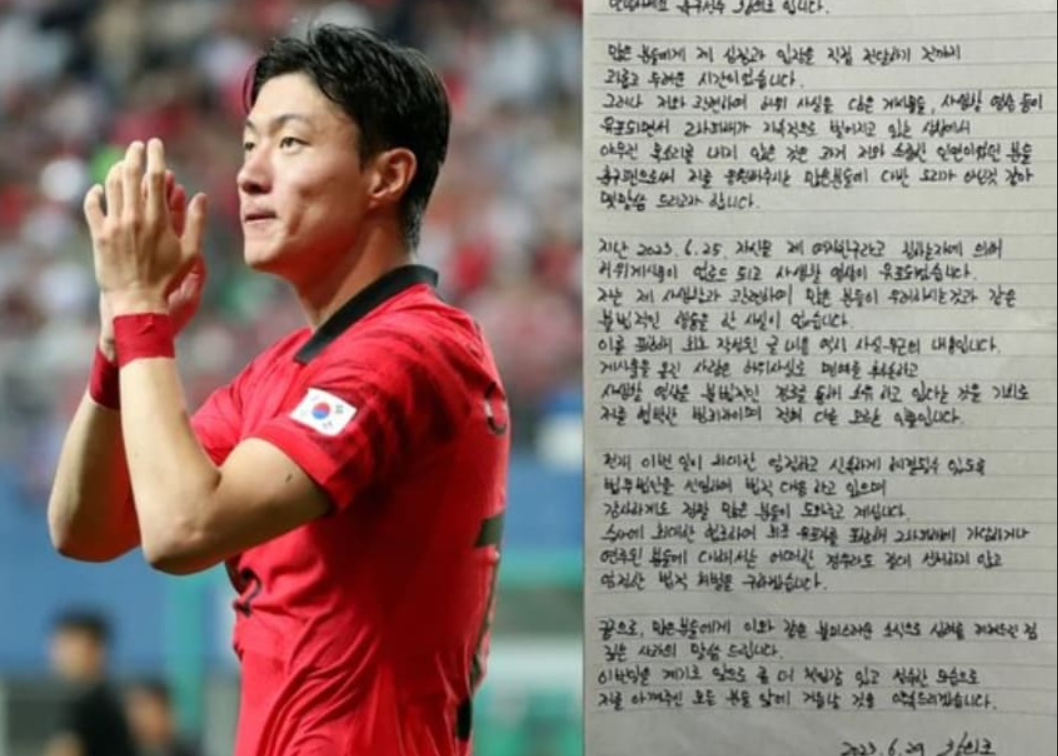 안녕하세요 축구선수 황의조 입니다.
많은 분들에게 제 심정과 입장을 직접 전달하기 전까지
괴롭고 두려운 시간이었습니다.
그러나 저와 관련하여 허위 사실을 담은 게시물들, 사생활 영상 등이
유포되면서 2차피해가 지속적으로 벌어지고 있는 상황에서
아무런 목소리를 내지 않은 것은 과거 저와 소중한 인연이었던 분들
축구팬으로써 저를 응원해주시는 많은분들에 대한 도리가 아닌것 같아
몇말씀 드리고자 합니다.
지난 2023.6.25. 자신을 제 여자친구라고 칭하는자에 의해
허위게시물이 업로드 되고 사생활 영상이 유포되었습니다.
저는 제 사생활과 관련하여 많은 분들이 우려하시는것과 같은
불법적인 행동을 한 사실이 없습니다.
이를 포함해 최초 작성된 글 내용 역시 사실무근의 내용입니다.
게시물을 올린 사람은 허위사실로 명예를 훼손하고
사생활 영상을 불법적인 경로를 통해 소유 하고 있다는 것을 기회로
저를 협박한 범죄자이며 전혀 다를 모르는 이들입니다.
현재 이번 일이 최대한 엄정하고 신속하게 해결될수 있도록
법무법인을 선임하여 법적 대응 하고 있으며
감사하게도 정말 많은 분들이 도와주고 계십니다.
수사에 최대한 협조하여 최초 유포자를 포함해 2차가해에 가담하거나
연루된 분들에 대해서는 어떠한 경우라도 절대 선처하지 않고
엄정한 법적 처벌을 구하겠습니다.
끝으로, 많은분들에게 이와 같은 불미스러운 소식으로 심려를 끼쳐드린 점
깊은 사과의 말씀 드립니다.
이번일을 계기로 앞으로 좀 더 책임감 있고 성숙한 모습으로
저를 아껴주신 모든 분들 앞에 거듭날 것을 약속드리겠습니다.
2023.6.29 황의조